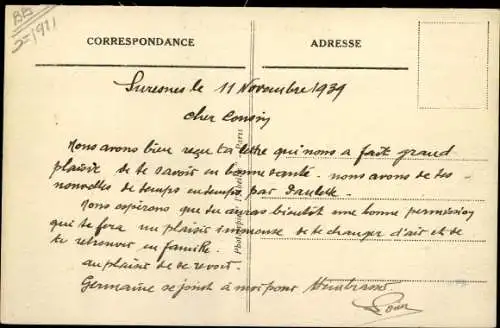 BB
5=1911
CORRESPONDANCE
ADRESSE
Suresnes le 11 Novembre 1939
cher Cousin
Nous avons bien reçue ta lettre qui nous a fait grand
plaisir de te savoir en bonne santé. nous avons de tes
nouvelles de temps en temps par Paulette.
Nous espérons que tu auras bientôt une bonne permission
qui te fera un plaisir immense de te changer d'air et de
te retrouver en famille.
au plaisir de te revoir.
Germaine se joint à moi pour t'embrasser